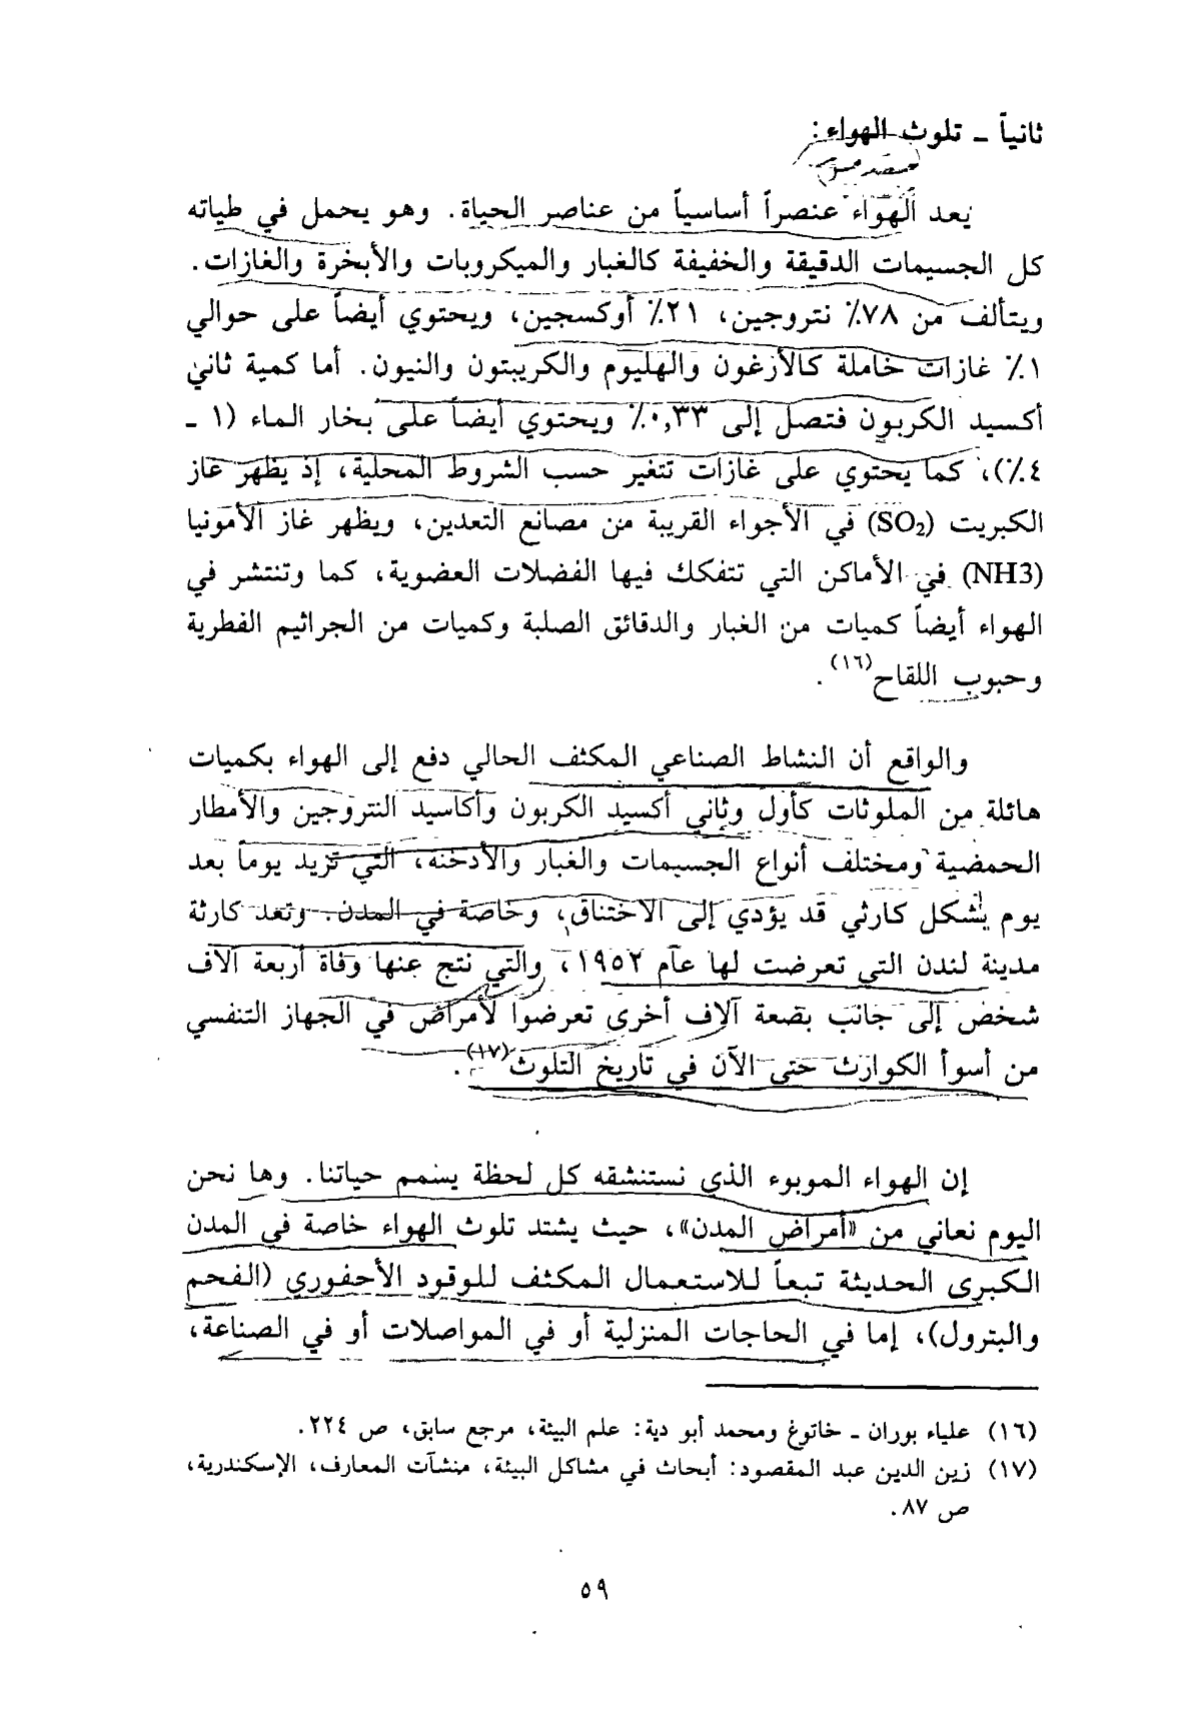 ثانياً ـ تلوث الهواء:
يعد الهواء عنصراً أساسياً من عناصر الحياة. وهو يحمل في طياته
كل الجسيمات الدقيقة والخفيفة كالغبار والميكروبات والأبخرة والغازات.
ويتألف من ٧٨٪ نتروجين، ٢١٪ أوكسجين، ويحتوي أيضاً على حوالي
١٪ غازات خاملة كالأرغون والهليوم والكريبتون والنيون. أما كمية ثاني
أكسيد الكربون فتصل إلى ٠,٣٣٪ ويحتوي أيضاً على بخار الماء (١ ـ
٤٪)، كما يحتوي على غازات تتغير حسب الشروط المحلية، إذ يظهر غاز
الكبريت (SO₂) في الأجواء القريبة من مصانع التعدين، ويظهر غاز الأمونيا
(NH3) في الأماكن التي تتفكك فيها الفضلات العضوية، كما وتنتشر في
الهواء أيضاً كميات من الغبار والدقائق الصلبة وكميات من الجراثيم الفطرية
وحبوب اللقاح(١٦).
والواقع أن النشاط الصناعي المكثف الحالي دفع إلى الهواء بكميات
هائلة من الملوثات كأول وثاني أكسيد الكربون وأكاسيد النتروجين والأمطار
الحمضية ومختلف أنواع الجسيمات والغبار والأدخنة، التي تزيد يوماً بعد
يوم بشكل كارثي قد يؤدي إلى الاختناق، وخاصة في المدن. وتعد كارثة
مدينة لندن التي تعرضت لها عام ١٩٥٢، والتي نتج عنها وفاة أربعة آلاف
شخص إلى جانب بضعة آلاف أخرى تعرضوا لأمراض في الجهاز التنفسي
من أسوأ الكوارث حتى الآن في تاريخ التلوث(١٧).
إن الهواء الموبوء الذي نستنشقه كل لحظة يسمم حياتنا. وها نحن
اليوم نعاني من «أمراض المدن»، حيث يشتد تلوث الهواء خاصة في المدن
الكبرى الحديثة تبعاً للاستعمال المكثف للوقود الأحفوري (الفحم
والبترول)، إما في الحاجات المنزلية أو في المواصلات أو في الصناعة،
(١٦) علياء بوران ـ خاتوغ ومحمد أبو دية: علم البيئة، مرجع سابق، ص ٢٢٤.
(١٧) زين الدين عبد المقصود: أبحاث في مشاكل البيئة، منشآت المعارف، الإسكندرية،
ص ٨٧.
٥٩